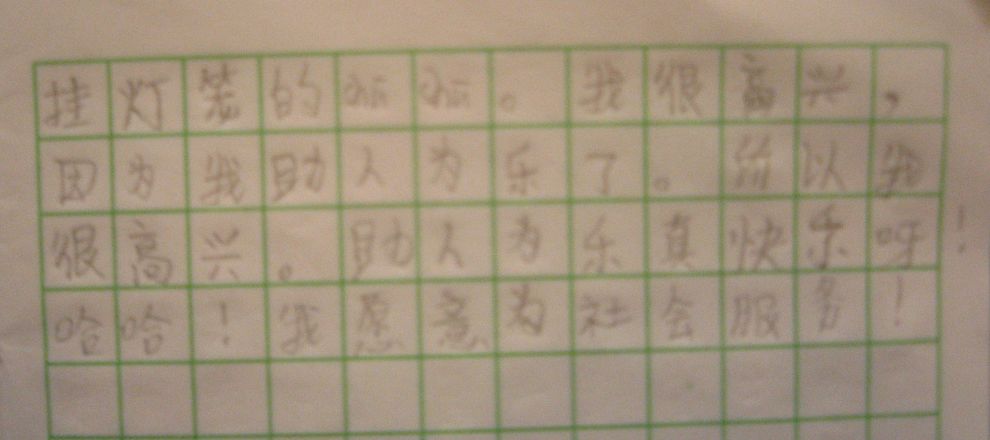 挂灯笼的 。我很高兴，
因为我助人为乐了。所以我
很高兴。助人为乐真快乐呀！
哈哈！我愿意为社会服务！